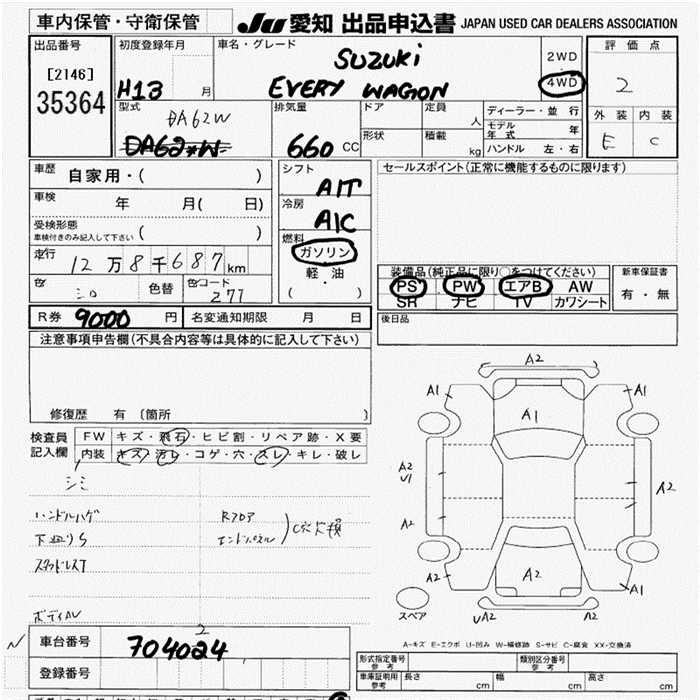 車内保管・守衛保管 JU 愛知 出品申込書 JAPAN USED CAR DEALERS ASSOCIATION
出品番号 初度登録年月 車名・グレード 2WD 評価点
[2146] H13 月 SUZUKI 4WD 2
35364 EVERY WAGON
型式 DA62W 排気量 ドア 定員 人 ディーラー・並行 外装 内装
DA62W 660 CC 形状 積載 kg モデル年式 年 E C
ハンドル 左・右
車歴 自家用・( ) シフト A/T セールスポイント(正常に機能するものに限ります)
車検 年 月( 日) 冷房 A/C
受検形態
車検付きのみ記入して下さい ( ) 燃料 ガソリン
走行 12万8千687km 軽・油 装備品(純正品に限り○をつけてください) 新車保証書
色 シロ 色替 色コード Z77 ( ) PS PW エアB AW 有・無
SR ナビ TV カワシート
R券 9000 円 名変通知期限 月 日 後日品
注意事項申告欄(不具合内容等は具体的に記入して下さい)
修復歴 有 〔箇所
検査員 FW キズ・飛石・ヒビ割・リペア跡・X要
記入欄 内装 キズ・汚レ・コゲ・穴・スレ・キレ・破レ
シミ
ハンドルハゲ Rフロア
下廻りS エンドパネル C穴大損
スタッドレスT
ボディAU
A2
A1 A1
A1
A2
U1 A2
A2
A2 A2 A1
スペア UA2 A2
A-キズ E-エクボ U-凹み W-補修跡 S-サビ C-腐食 XX-交換済
N 車台番号 704024
2
登録番号
形式指定番号 参考 類別区分番号 参考
車庫証明用 参考 長さ cm 幅 cm 高さ cm